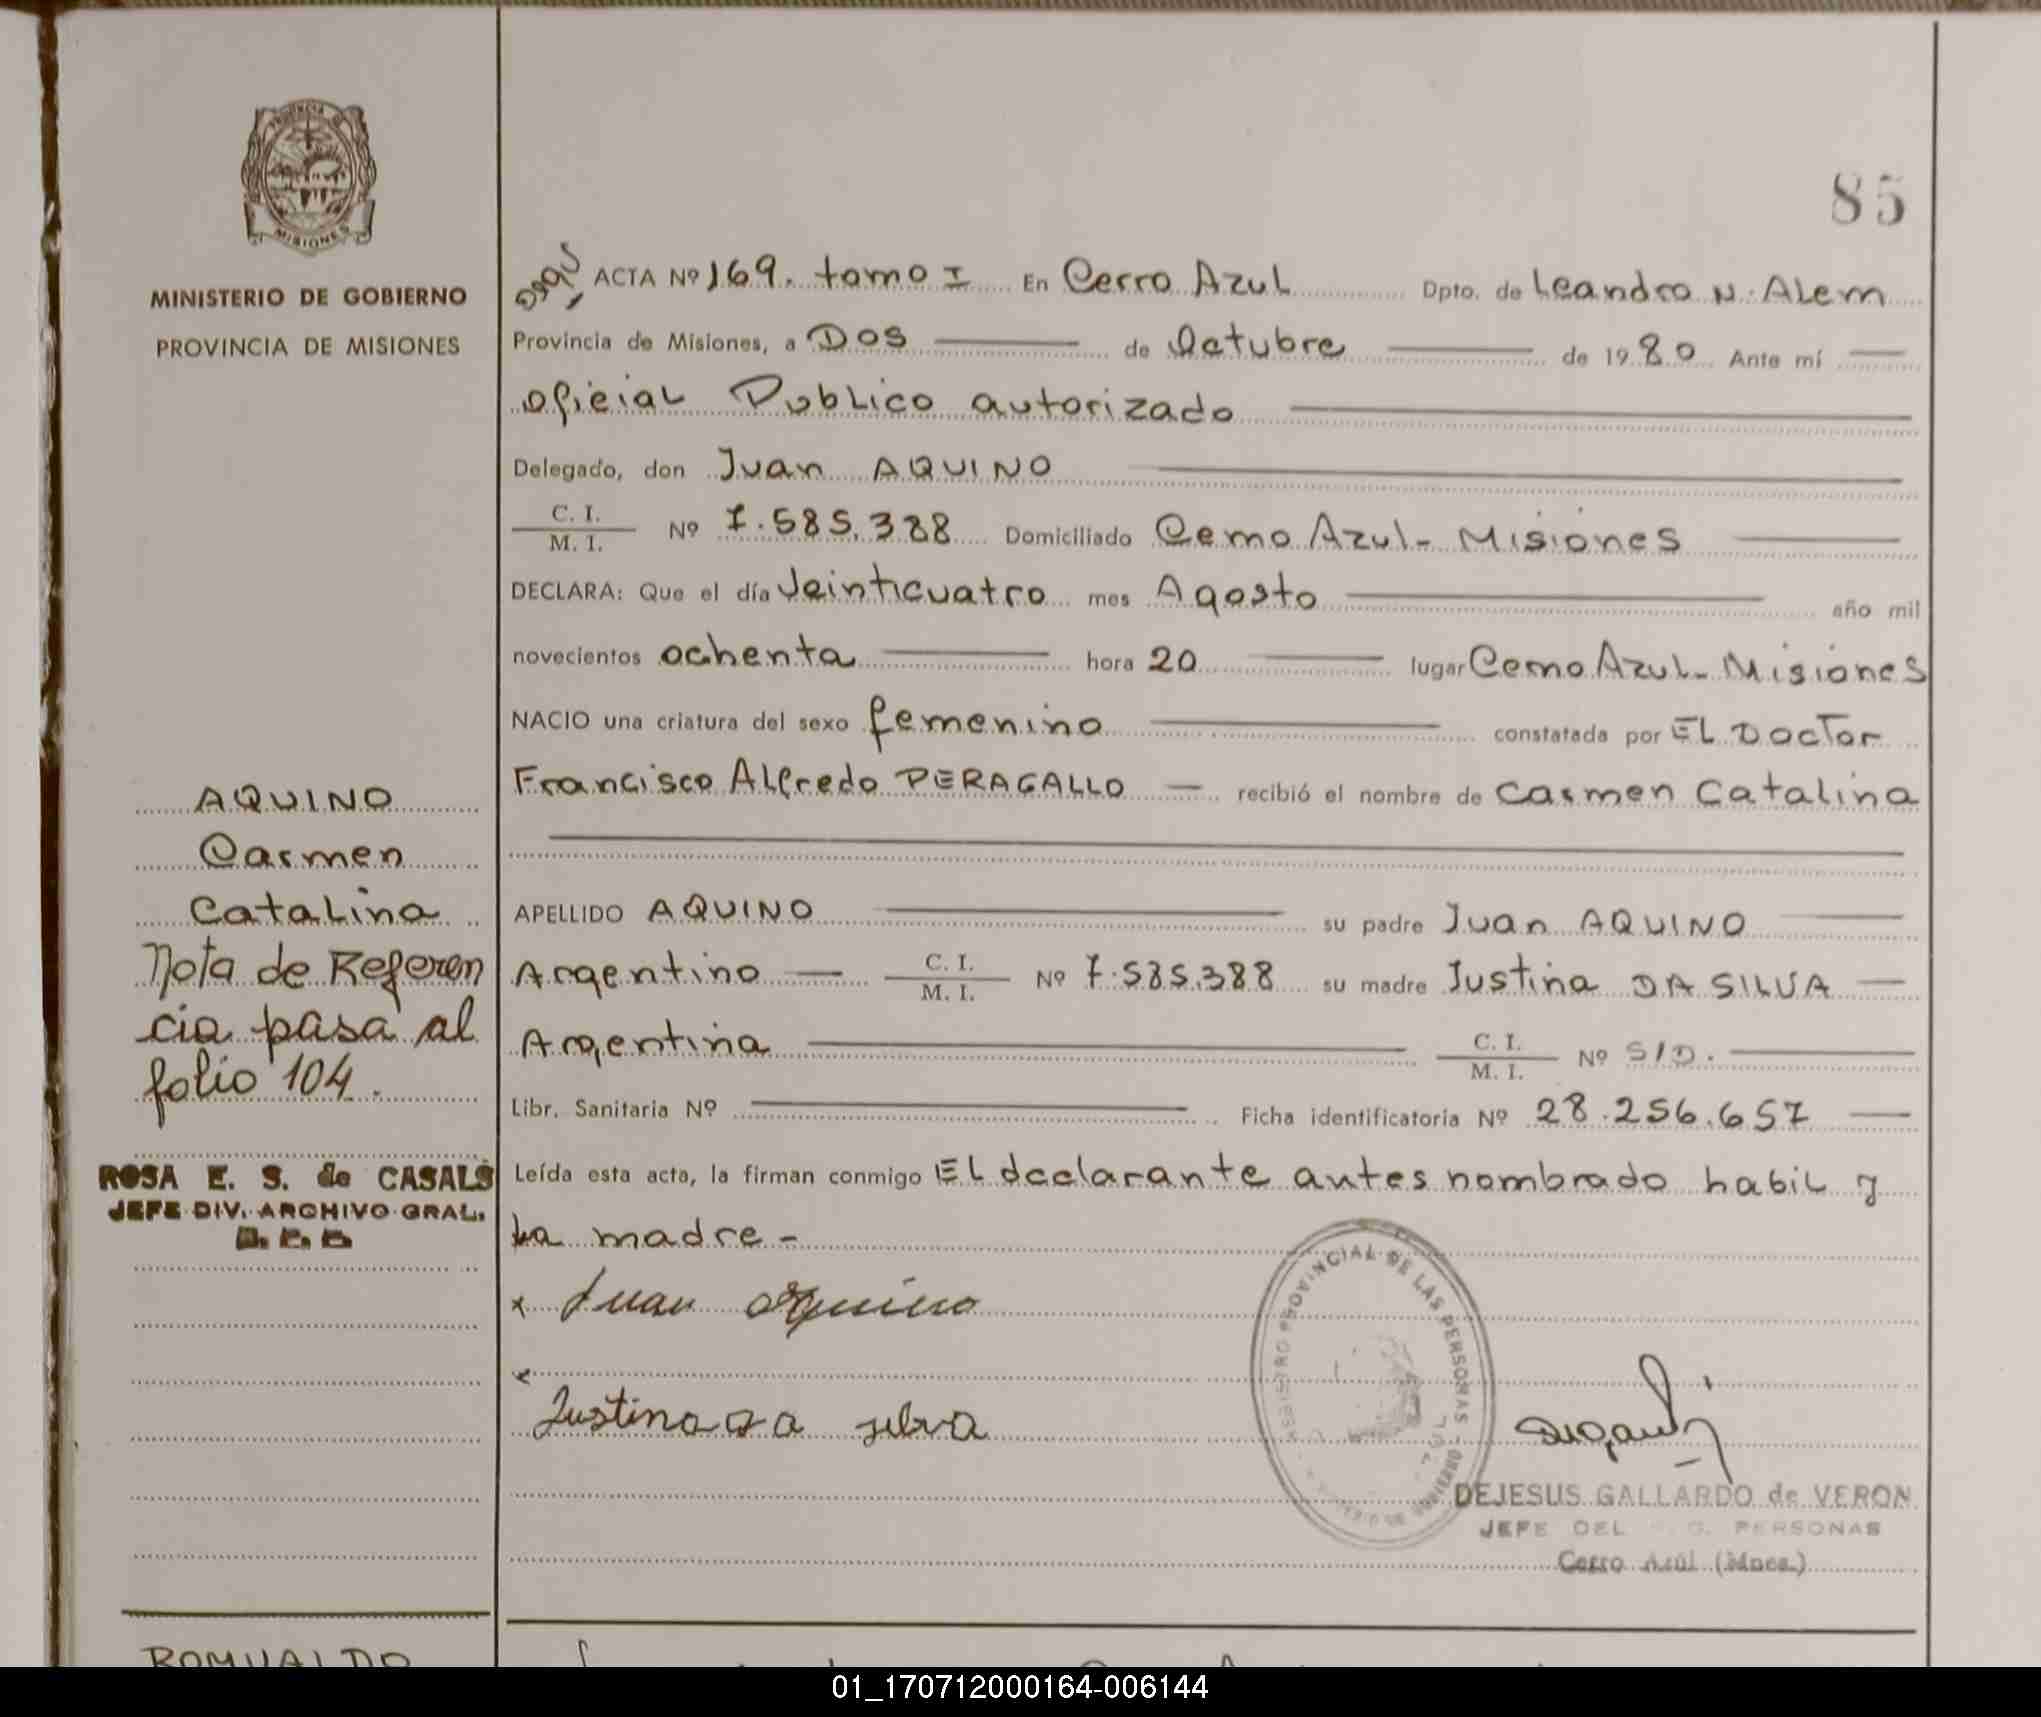 85
MISIONES
MINISTERIO DE GOBIERNO
PROVINCIA DE MISIONES
AQUINO
Carmen
Catalina
Nota de Referen
cia pasa al
folio 104.
ROSA E. S. de CASALS
JEFE DIV. ARCHIVO GRAL.
ACTA Nº 169. tomo I En Cerro Azul Dpto. de Leandro N. Alem
Provincia de Misiones, a Dos de Octubre de 1980 Ante mí
oficial Publico autorizado
Delegado, don Juan AQUINO
C. I.
M. I. Nº 7.585.388 Domiciliado Cerro Azul - Misiones
DECLARA: Que el día Veinticuatro mes Agosto año mil
novecientos ochenta hora 20 lugar Cerro Azul - Misiones
NACIO una criatura del sexo femenino constatada por EL Doctor
Francisco Alfredo PERAGALLO recibió el nombre de Carmen Catalina
APELLIDO AQUINO su padre Juan AQUINO
Argentino C. I.
M. I. Nº 7.585.388 su madre Justina DA SILVA
Argentina C. I.
M. I. Nº S/D.
Libr. Sanitaria Nº Ficha identificatoria Nº 28.256.657
Leída esta acta, la firman conmigo EL declarante antes nombrado habil y
La madre -
x Juan Aquino
x
Justina da silva
REGISTRO PROVINCIAL DE LAS PERSONAS
DEJESUS GALLARDO de VERON
JEFE DEL PERSONAS
Cerro Azul (Mnes.)
ROMUALDO
01_170712000164-006144